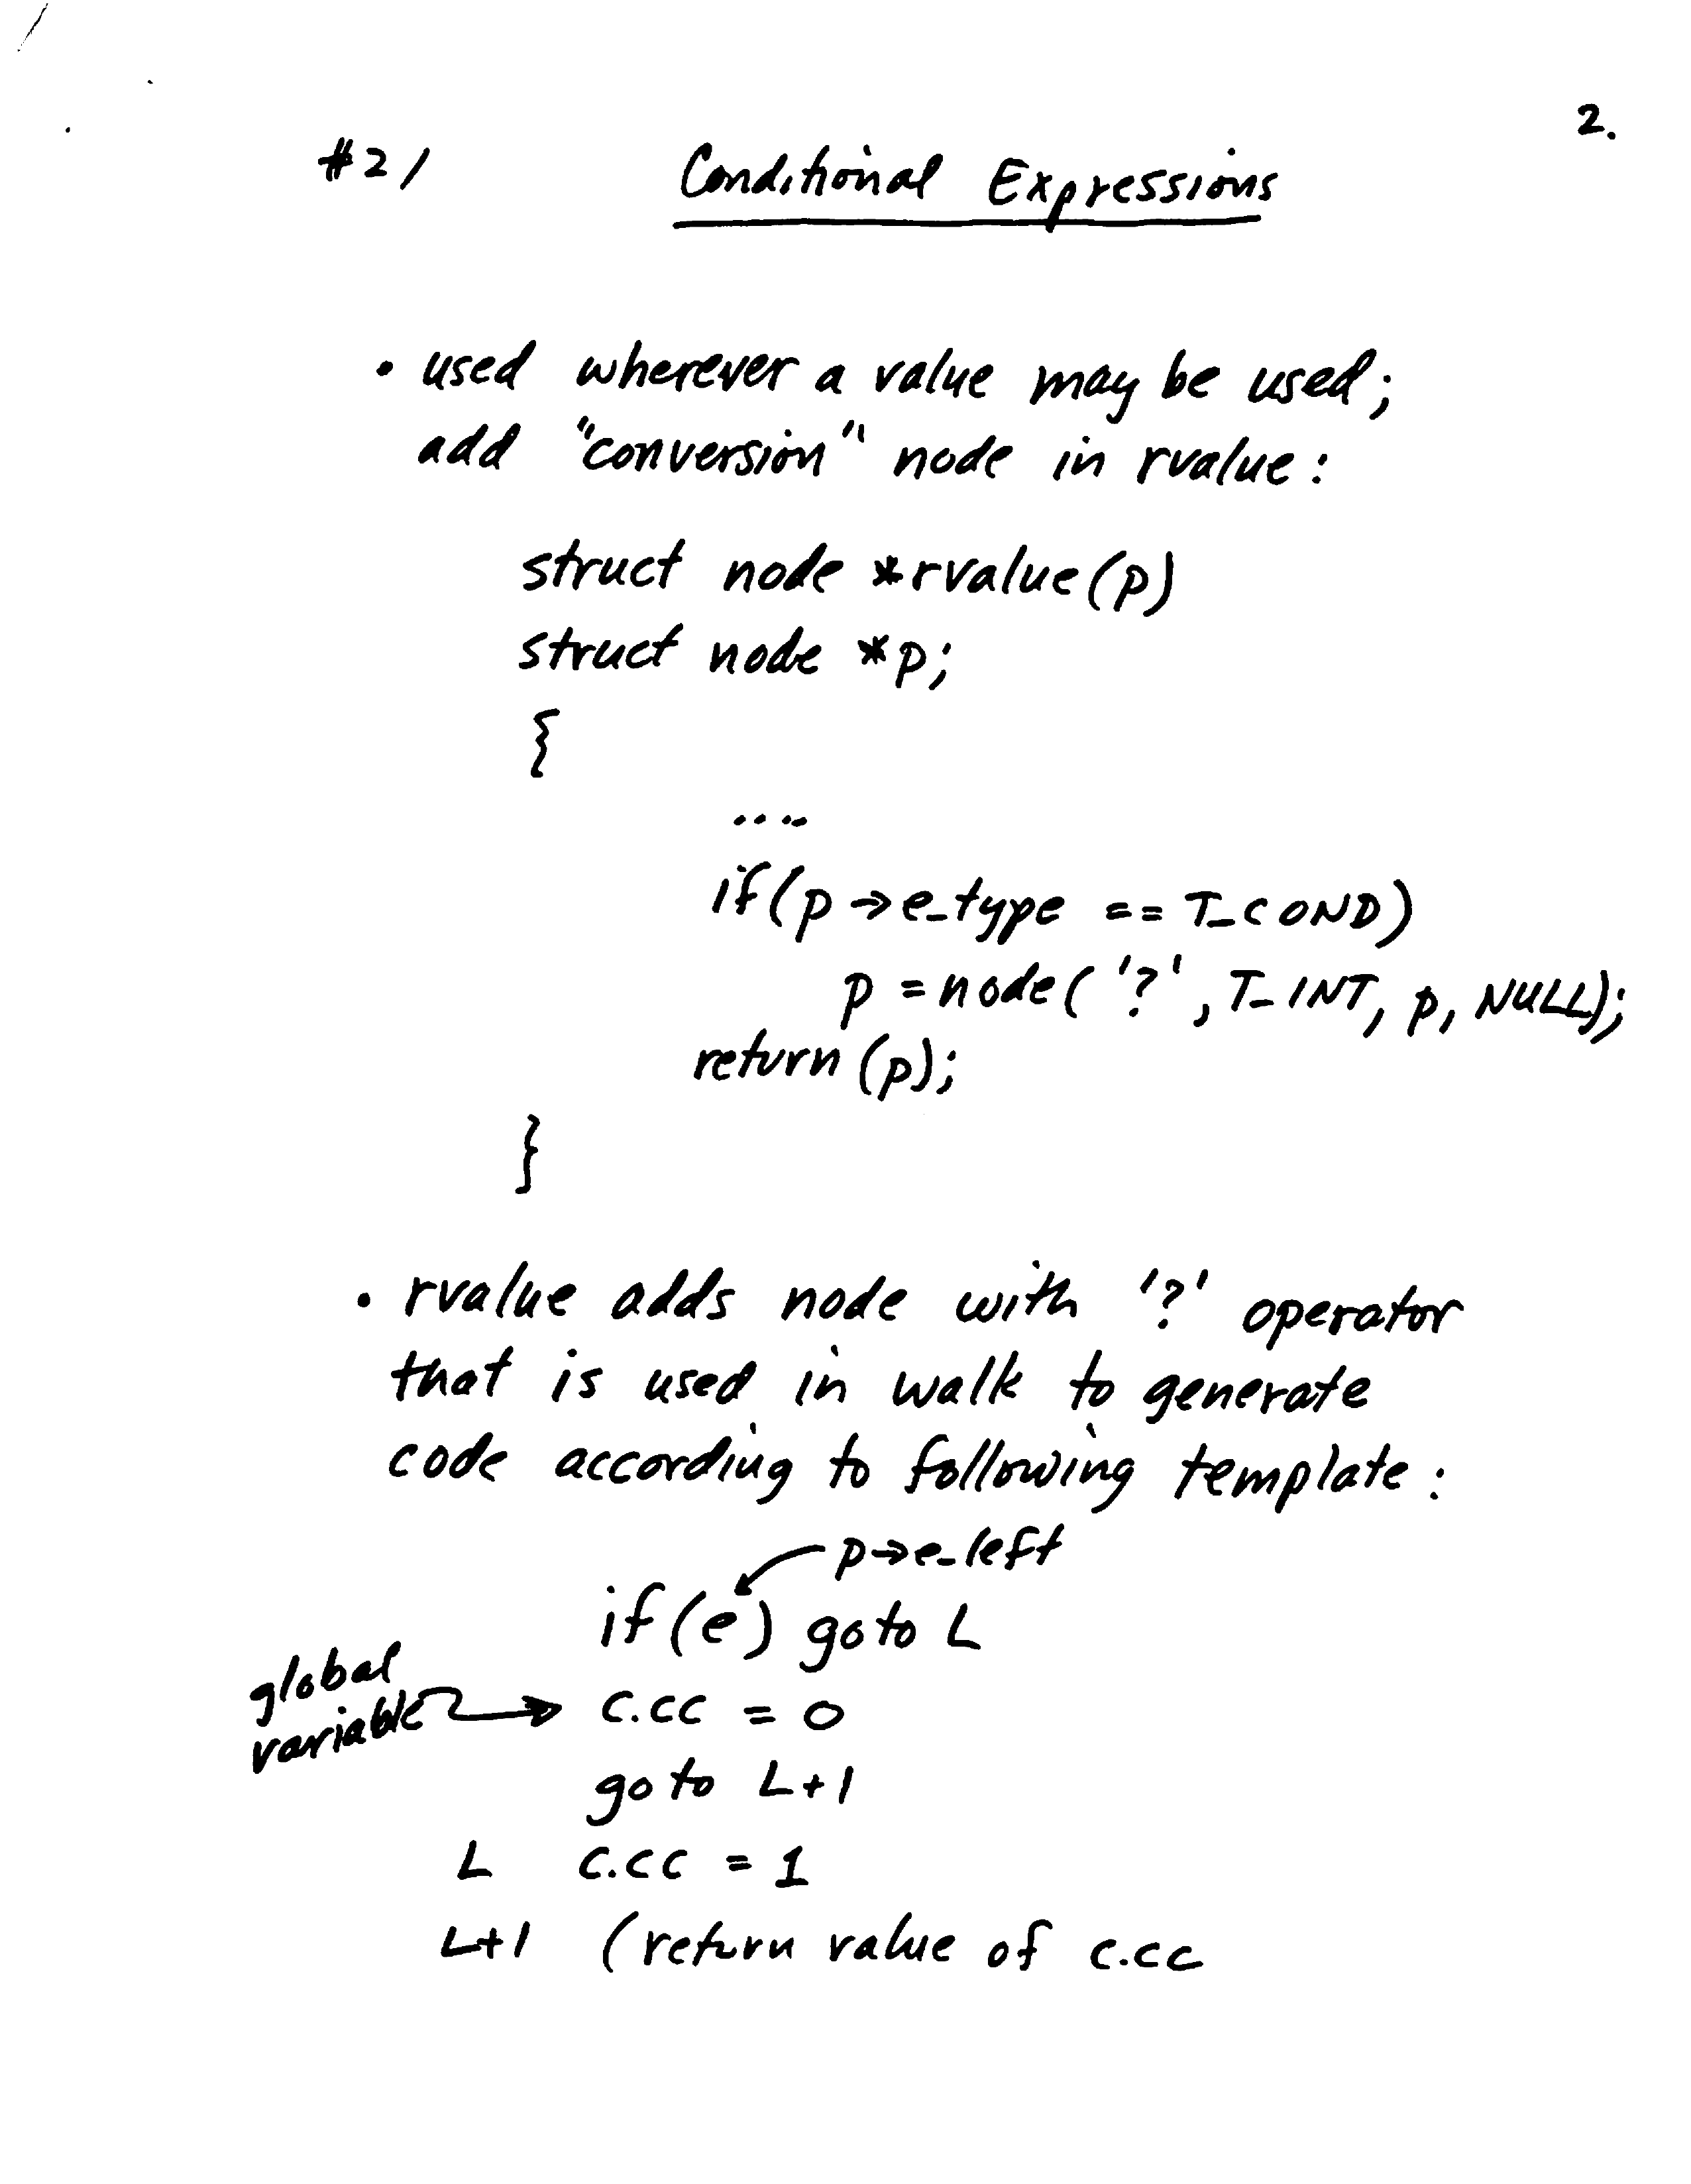 2.
#21 Conditional Expressions
• used wherever a value may be used;
add "conversion" node in rvalue:
struct node *rvalue(p)
struct node *p;
{
....
if(p→e_type == T_COND)
p = node('?', T_INT, p, NULL);
return(p);
}
• rvalue adds node with '?' operator
that is used in walk to generate
code according to following template:
p→e_left
if(e) goto L
global
variable → c.cc = 0
goto L+1
L c.cc = 1
L+1 (return value of c.cc